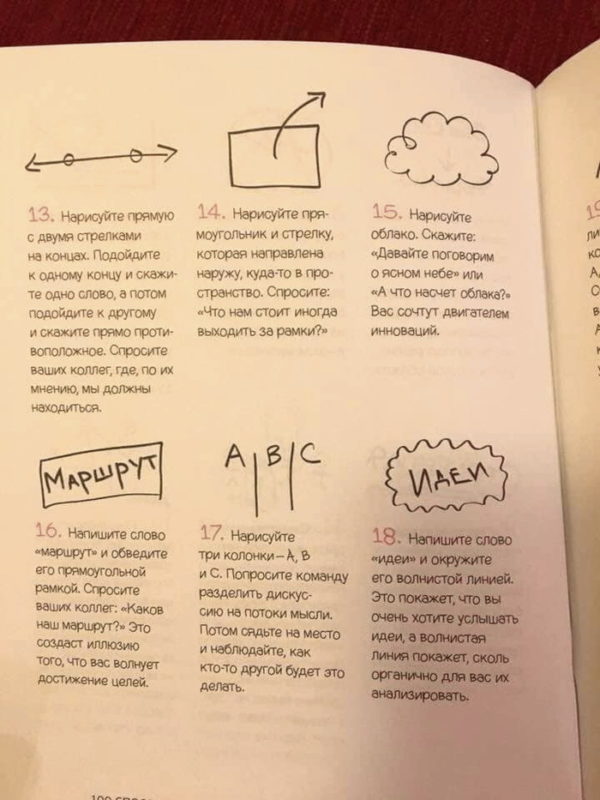 13. Нарисуйте прямую
с двумя стрелками
на концах. Подойдите
к одному концу и скажи-
те одно слово, а потом
подойдите к другому
и скажите прямо проти-
воположное. Спросите
ваших коллег, где, по их
мнению, мы должны
находиться.
14. Нарисуйте пря-
моугольник и стрелку,
которая направлена
наружу, куда-то в про-
странство. Спросите:
«Что нам стоит иногда
выходить за рамки?»
15. Нарисуйте
облако. Скажите:
«Давайте поговорим
о ясном небе» или
«А что насчет облака?»
Вас сочтут двигателем
инноваций.
МАРШРУТ
16. Напишите слово
«маршрут» и обведите
его прямоугольной
рамкой. Спросите
ваших коллег: «Каков
наш маршрут?» Это
создаст иллюзию
того, что вас волнует
достижение целей.
A B C
17. Нарисуйте
три колонки — A, B
и C. Попросите команду
разделить дискус-
сию на потоки мысли.
Потом сядьте на место
и наблюдайте, как
кто-то другой будет это
делать.
ИДЕИ
18. Напишите слово
«идеи» и окружите
его волнистой линией.
Это покажет, что вы
очень хотите услышать
идеи, а волнистая
линия покажет, сколь
органично для вас их
анализировать.